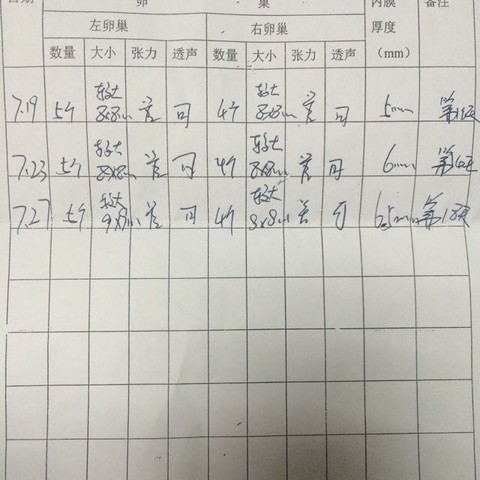 日期 卵 巢 内膜厚度(mm) 备注
左卵巢 右卵巢
数量 大小 张力 透声 数量 大小 张力 透声
7.19 5个 较大8x8m 差 可 4个 较大8x8m 差 可 5mm
7.23 5个 较大8x8m 差 可 4个 较大8x8m 差 可 6mm
7.27 5个 较大9x8m 差 可 4个 较大8x8m 差 可 6.5mm